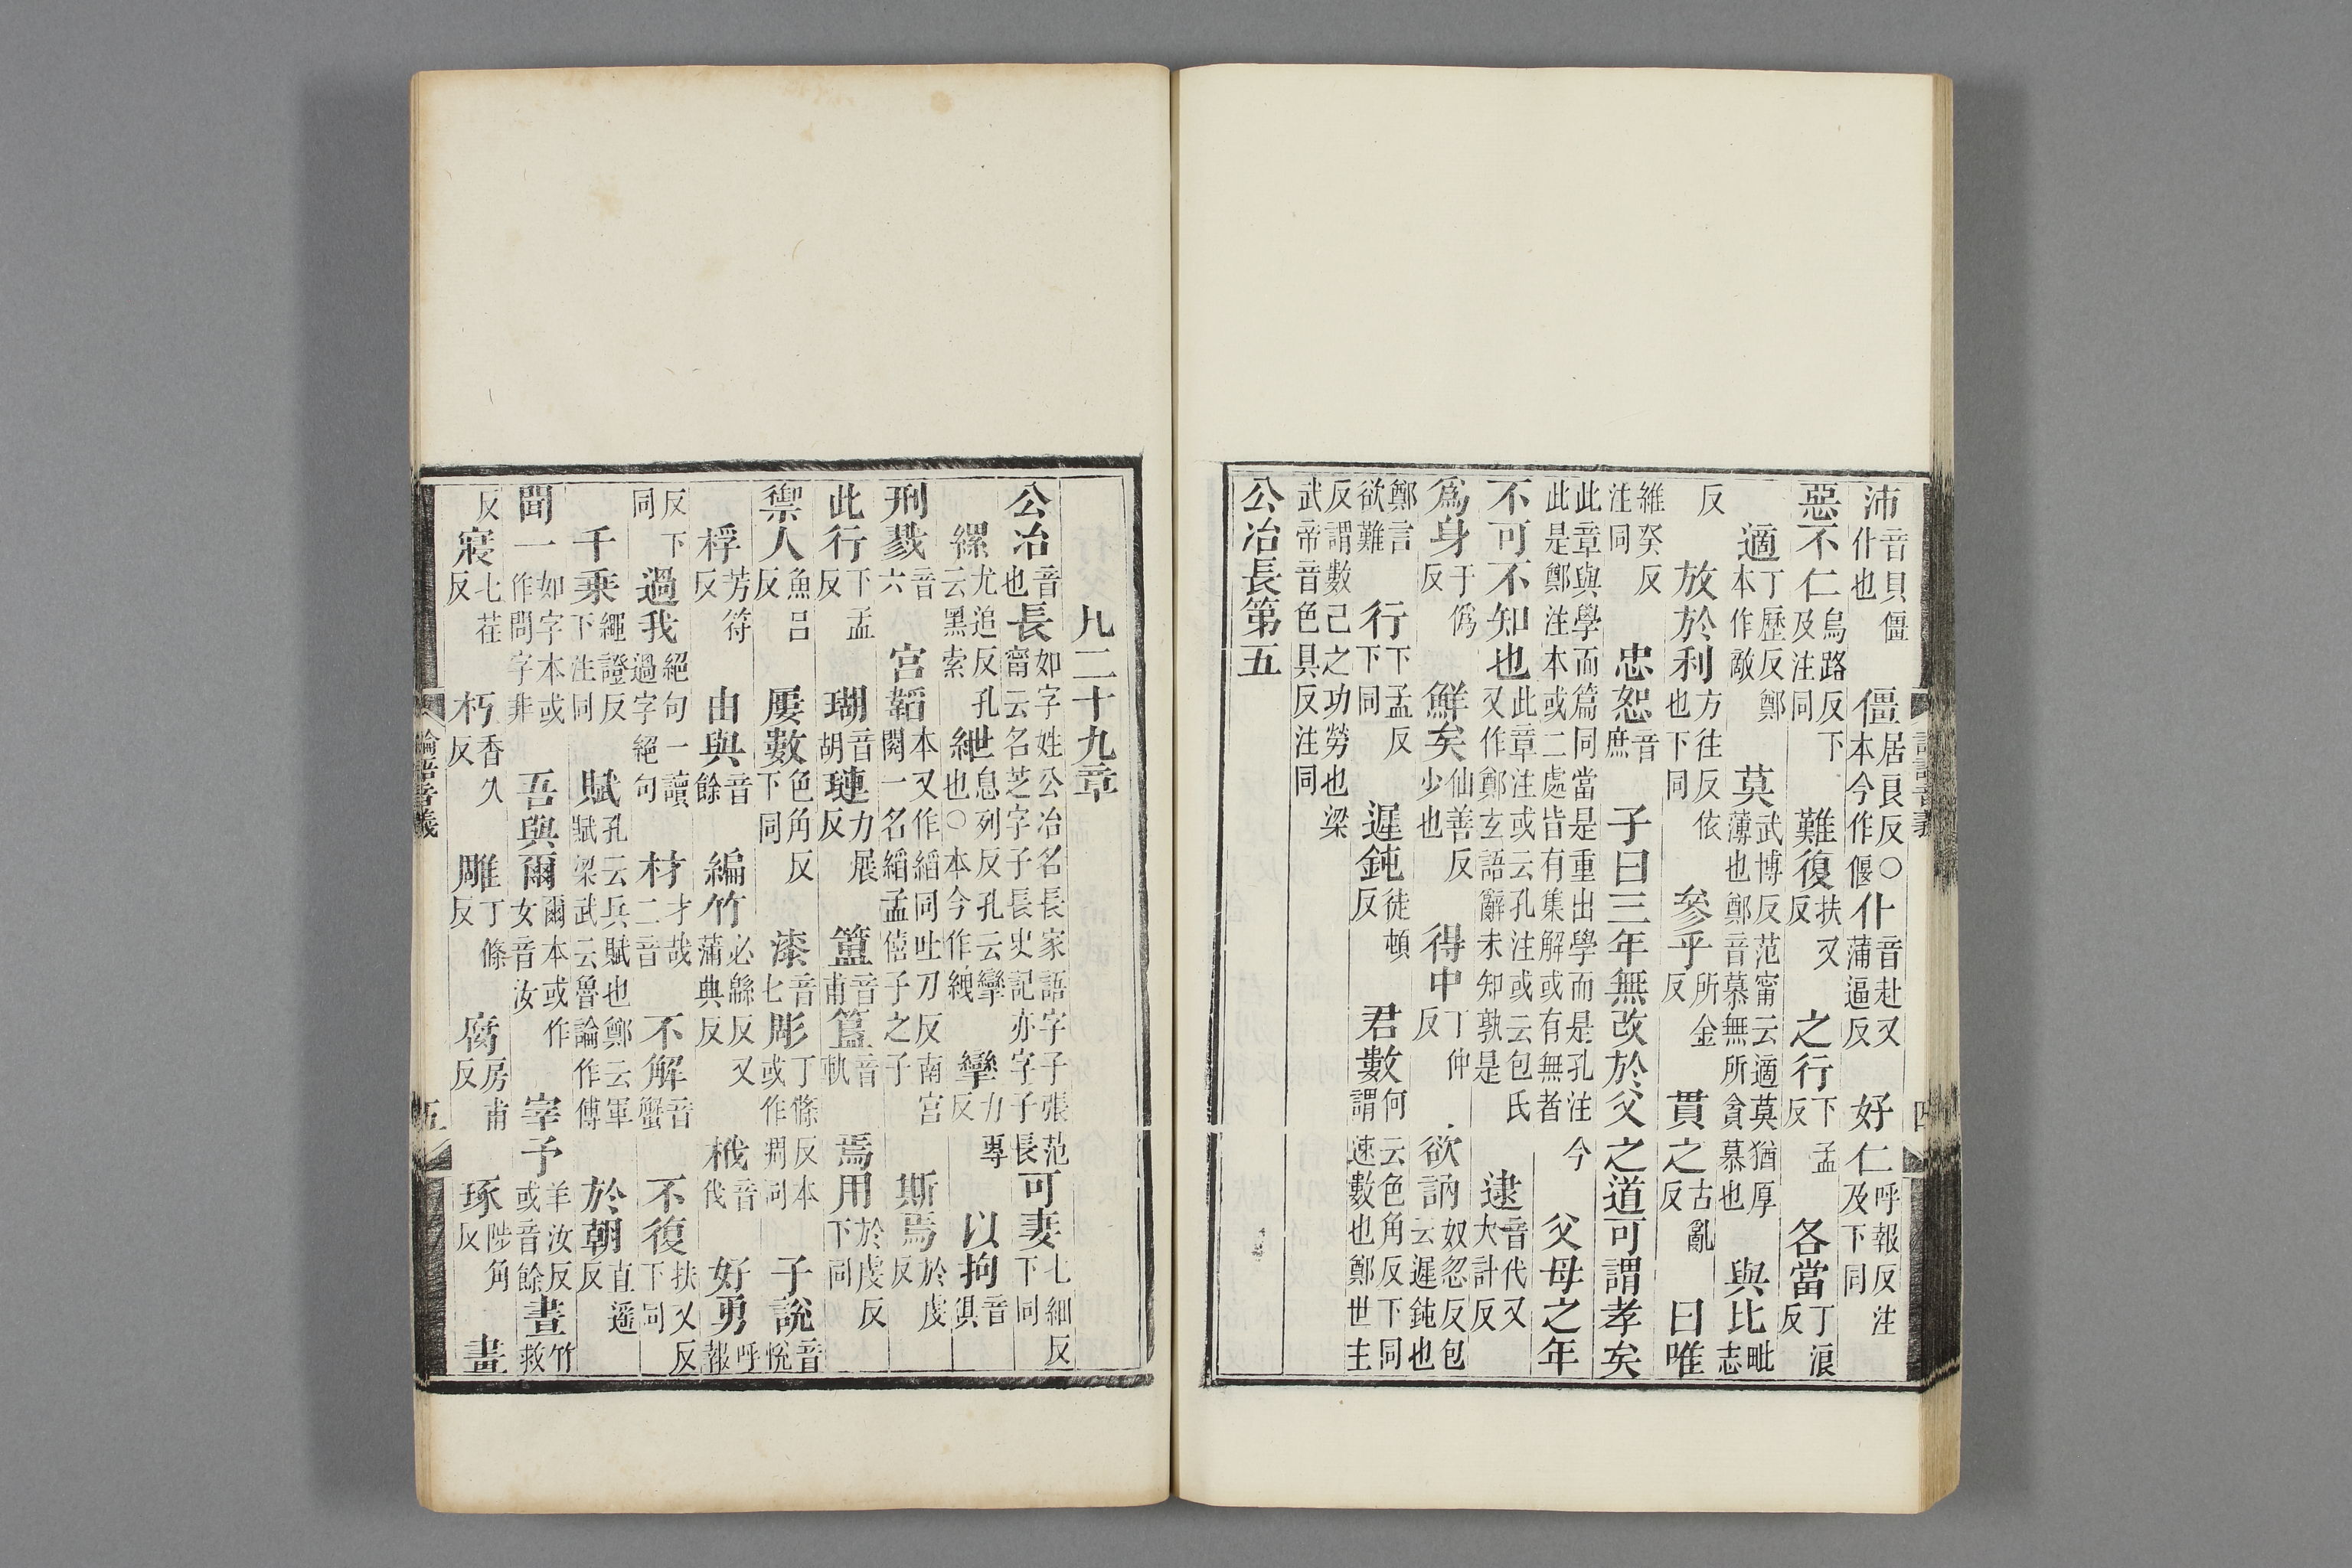 沛音貝僵仆也　僵居良反○本今作偃仆音赴又蒲逼反　好仁呼報反注及下同
惡不仁烏路反下及注同　難復扶又反　之行下孟反　各當丁浪反
適丁歷反鄭本作敵　莫武博反范甯云適莫猶厚薄也鄭音慕無所貪慕也　與比毗志
反　放於利方往反依也下同　參乎所金反　貫之古亂反　曰唯
維癸反注同　忠恕音庶　子曰三年無改於父之道可謂孝矣
此章與學而篇同當是重出學而是孔注今此是鄭注本或二處皆有集解或有無者　父母之年
不可不知也此章注或云孔注或云包氏又作鄭玄語辭未知孰是　逮音代又大計反
爲身于僞反　鮮矣仙善反少也　得中丁仲反　欲訥奴忽反包云遲鈍也
鄭言欲難　行下孟反下同　遲鈍徒頓反　君數何云色角反下同謂速數也鄭世主
反謂數己之功勞也梁武帝音色具反注同
公冶長第五
凡二十九章
公冶音也長如字姓公冶名長家語字子張范甯云名芝字子長史記亦字子長可妻七細反下同
縲尤追反孔云黑索　紲息列反孔云攣也○本今作絏　攣力專反　以拘音俱
刑戮音六　宮韜本又作縚同吐刀反南宮閱一名縚孟僖子之子　斯焉於虔反
此行下孟反　瑚音胡璉力展反　簠音甫簋音軌　焉用於虔反下同
禦人魚呂反　屢數色角反下同　漆音七彫丁條反本或作凋同　子說音悅
桴芳符反　由與音餘　編竹必緜反又蒲典反　栰音伐　好勇呼報
反下同　過我絕句一讀過字絕句　材才哉二音　不解音蟹　不復扶又反下同
千乘繩證反下注同　賦孔云兵賦也鄭云軍賦梁武云魯論作傅　於朝直遥反
聞一如字本或作問字非　吾與爾爾本或作女音汝　宰予羊汝反或音餘晝竹救
反寑七荏反　朽香久反　雕丁條反　腐房甫反　琢陟角反　畫
論語音義
五
四